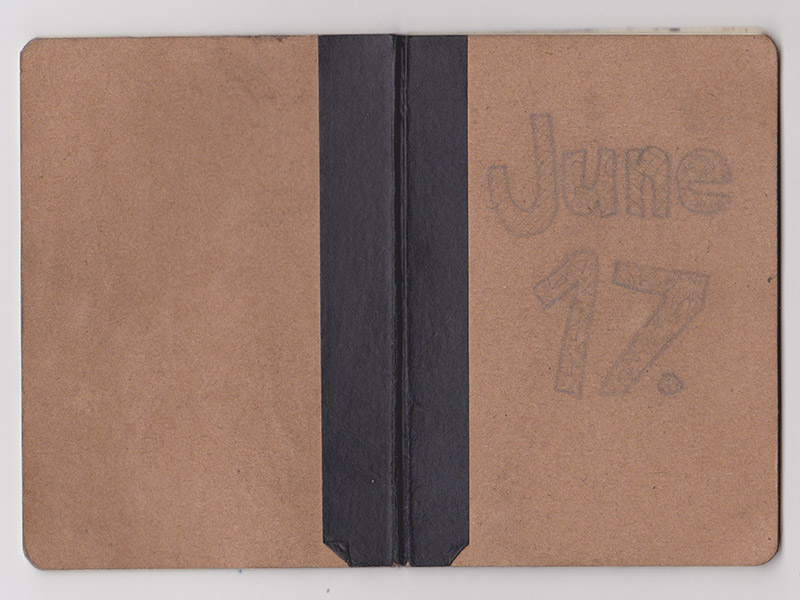 June
17.